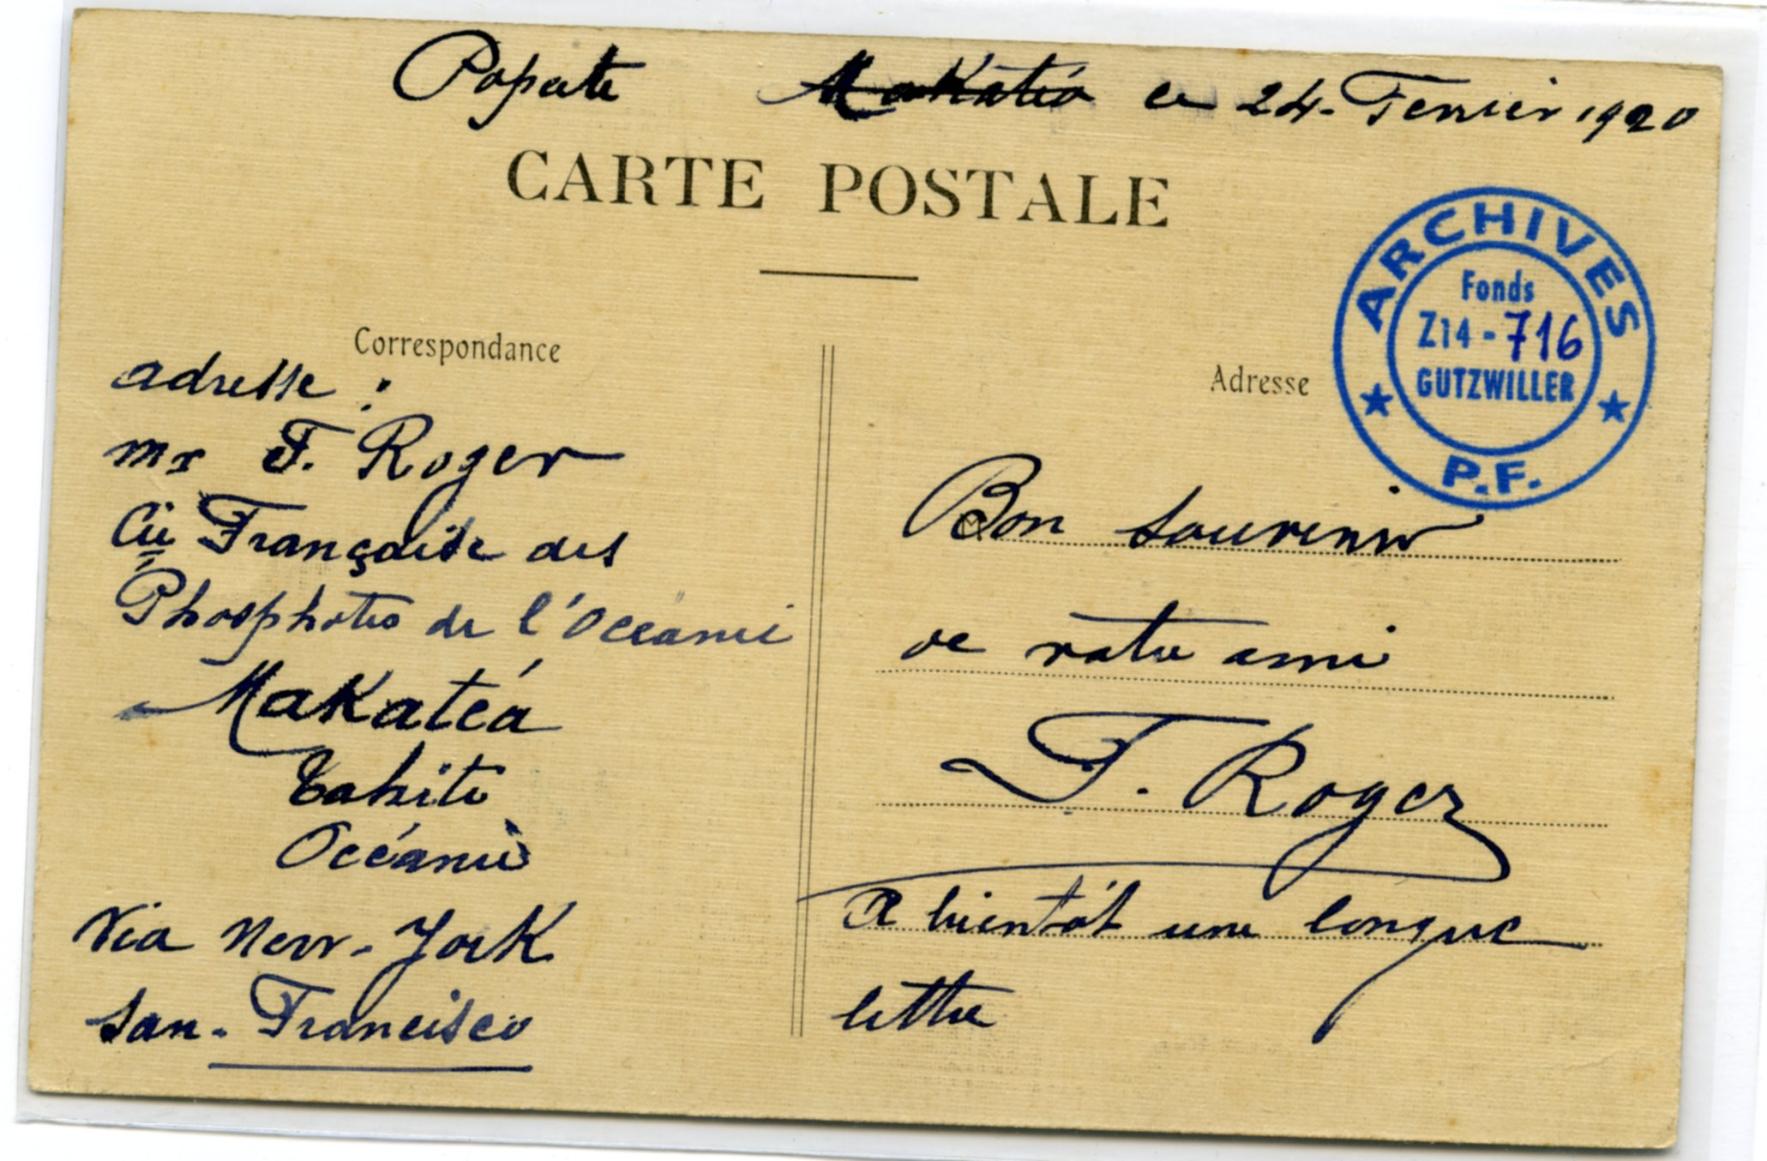 Papeete Makatéa ce 24. Fevrier 1920
CARTE POSTALE
ARCHIVES
Fonds
Z14-716
GUTZWILLER
P.F.
Correspondance
Adresse
adresse :
Mr F. Roger
Cie Française des
Phosphates de l'Océanie
Makatéa
Tahiti
Océanie
Via New-York
San-Francisco
Bon souvenir
de votre ami
F. Roger
A bientôt une longue
lettre